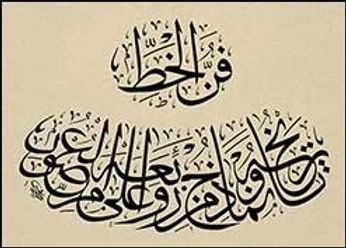 فنّ الخطّ
تاريخه ونماذج من روائعه على مرّ العصور